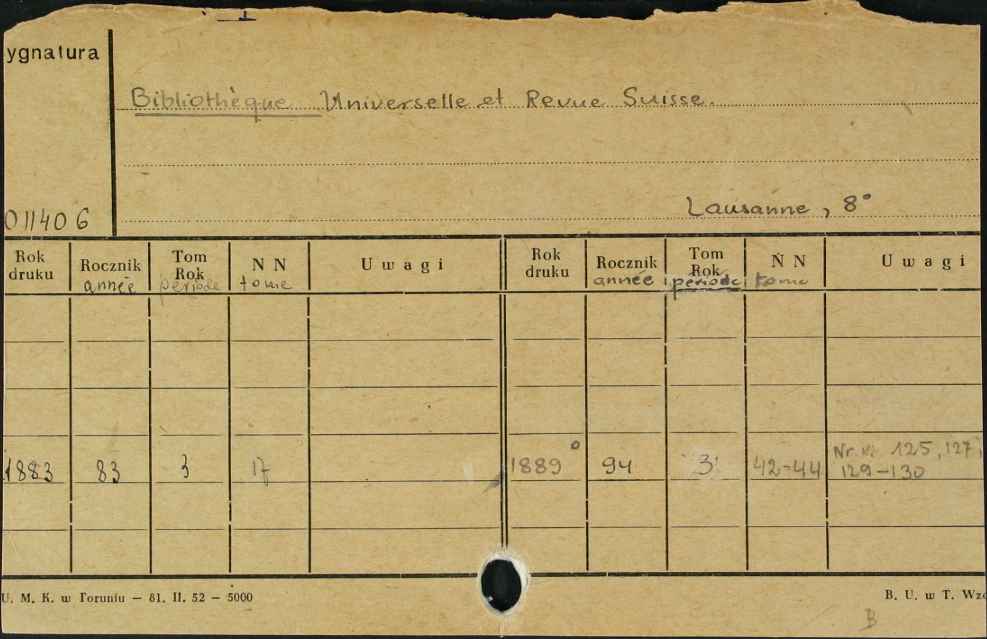 ygnatura
Bibliothèque Universelle et Revue Suisse.
011406
Lausanne, 8°
Rok druku Rocznik année Tom Rok période N N tome Uwagi Rok druku Rocznik année Tom Rok période N N tome Uwagi
1883 83 3 17 1889 94 3 42-44 Nr. 125, 127,
129-130
U. M. K. w Toruniu — 81. II. 52 — 5000
B. U. w T. Wzó
B